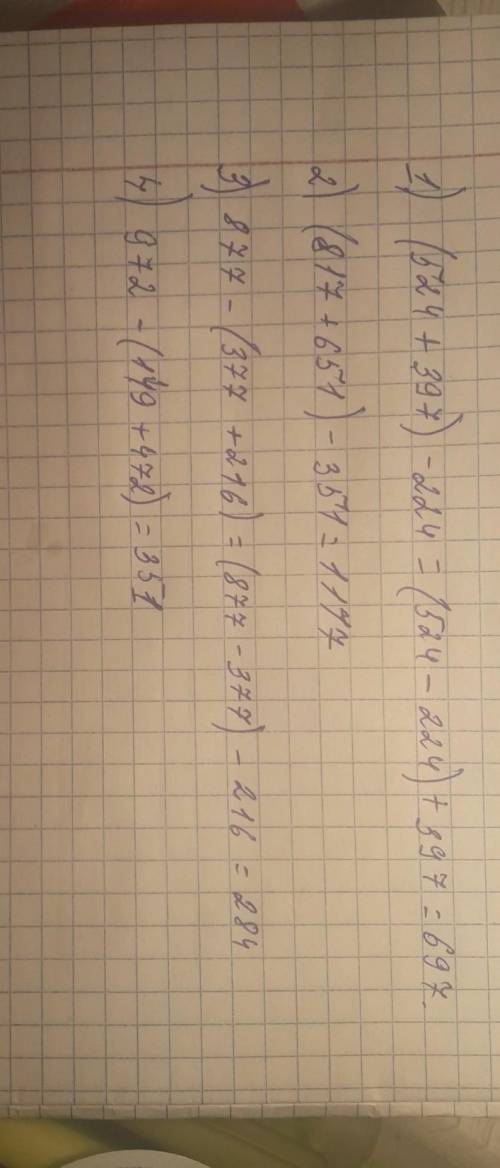 1) (524 + 397) - 224 = (524 - 224) + 397 = 697.
2) (817 + 651) - 351 = 1117
3) 877 - (377 + 216) = (877 - 377) - 216 = 284
4) 972 - (149 + 472) = 351